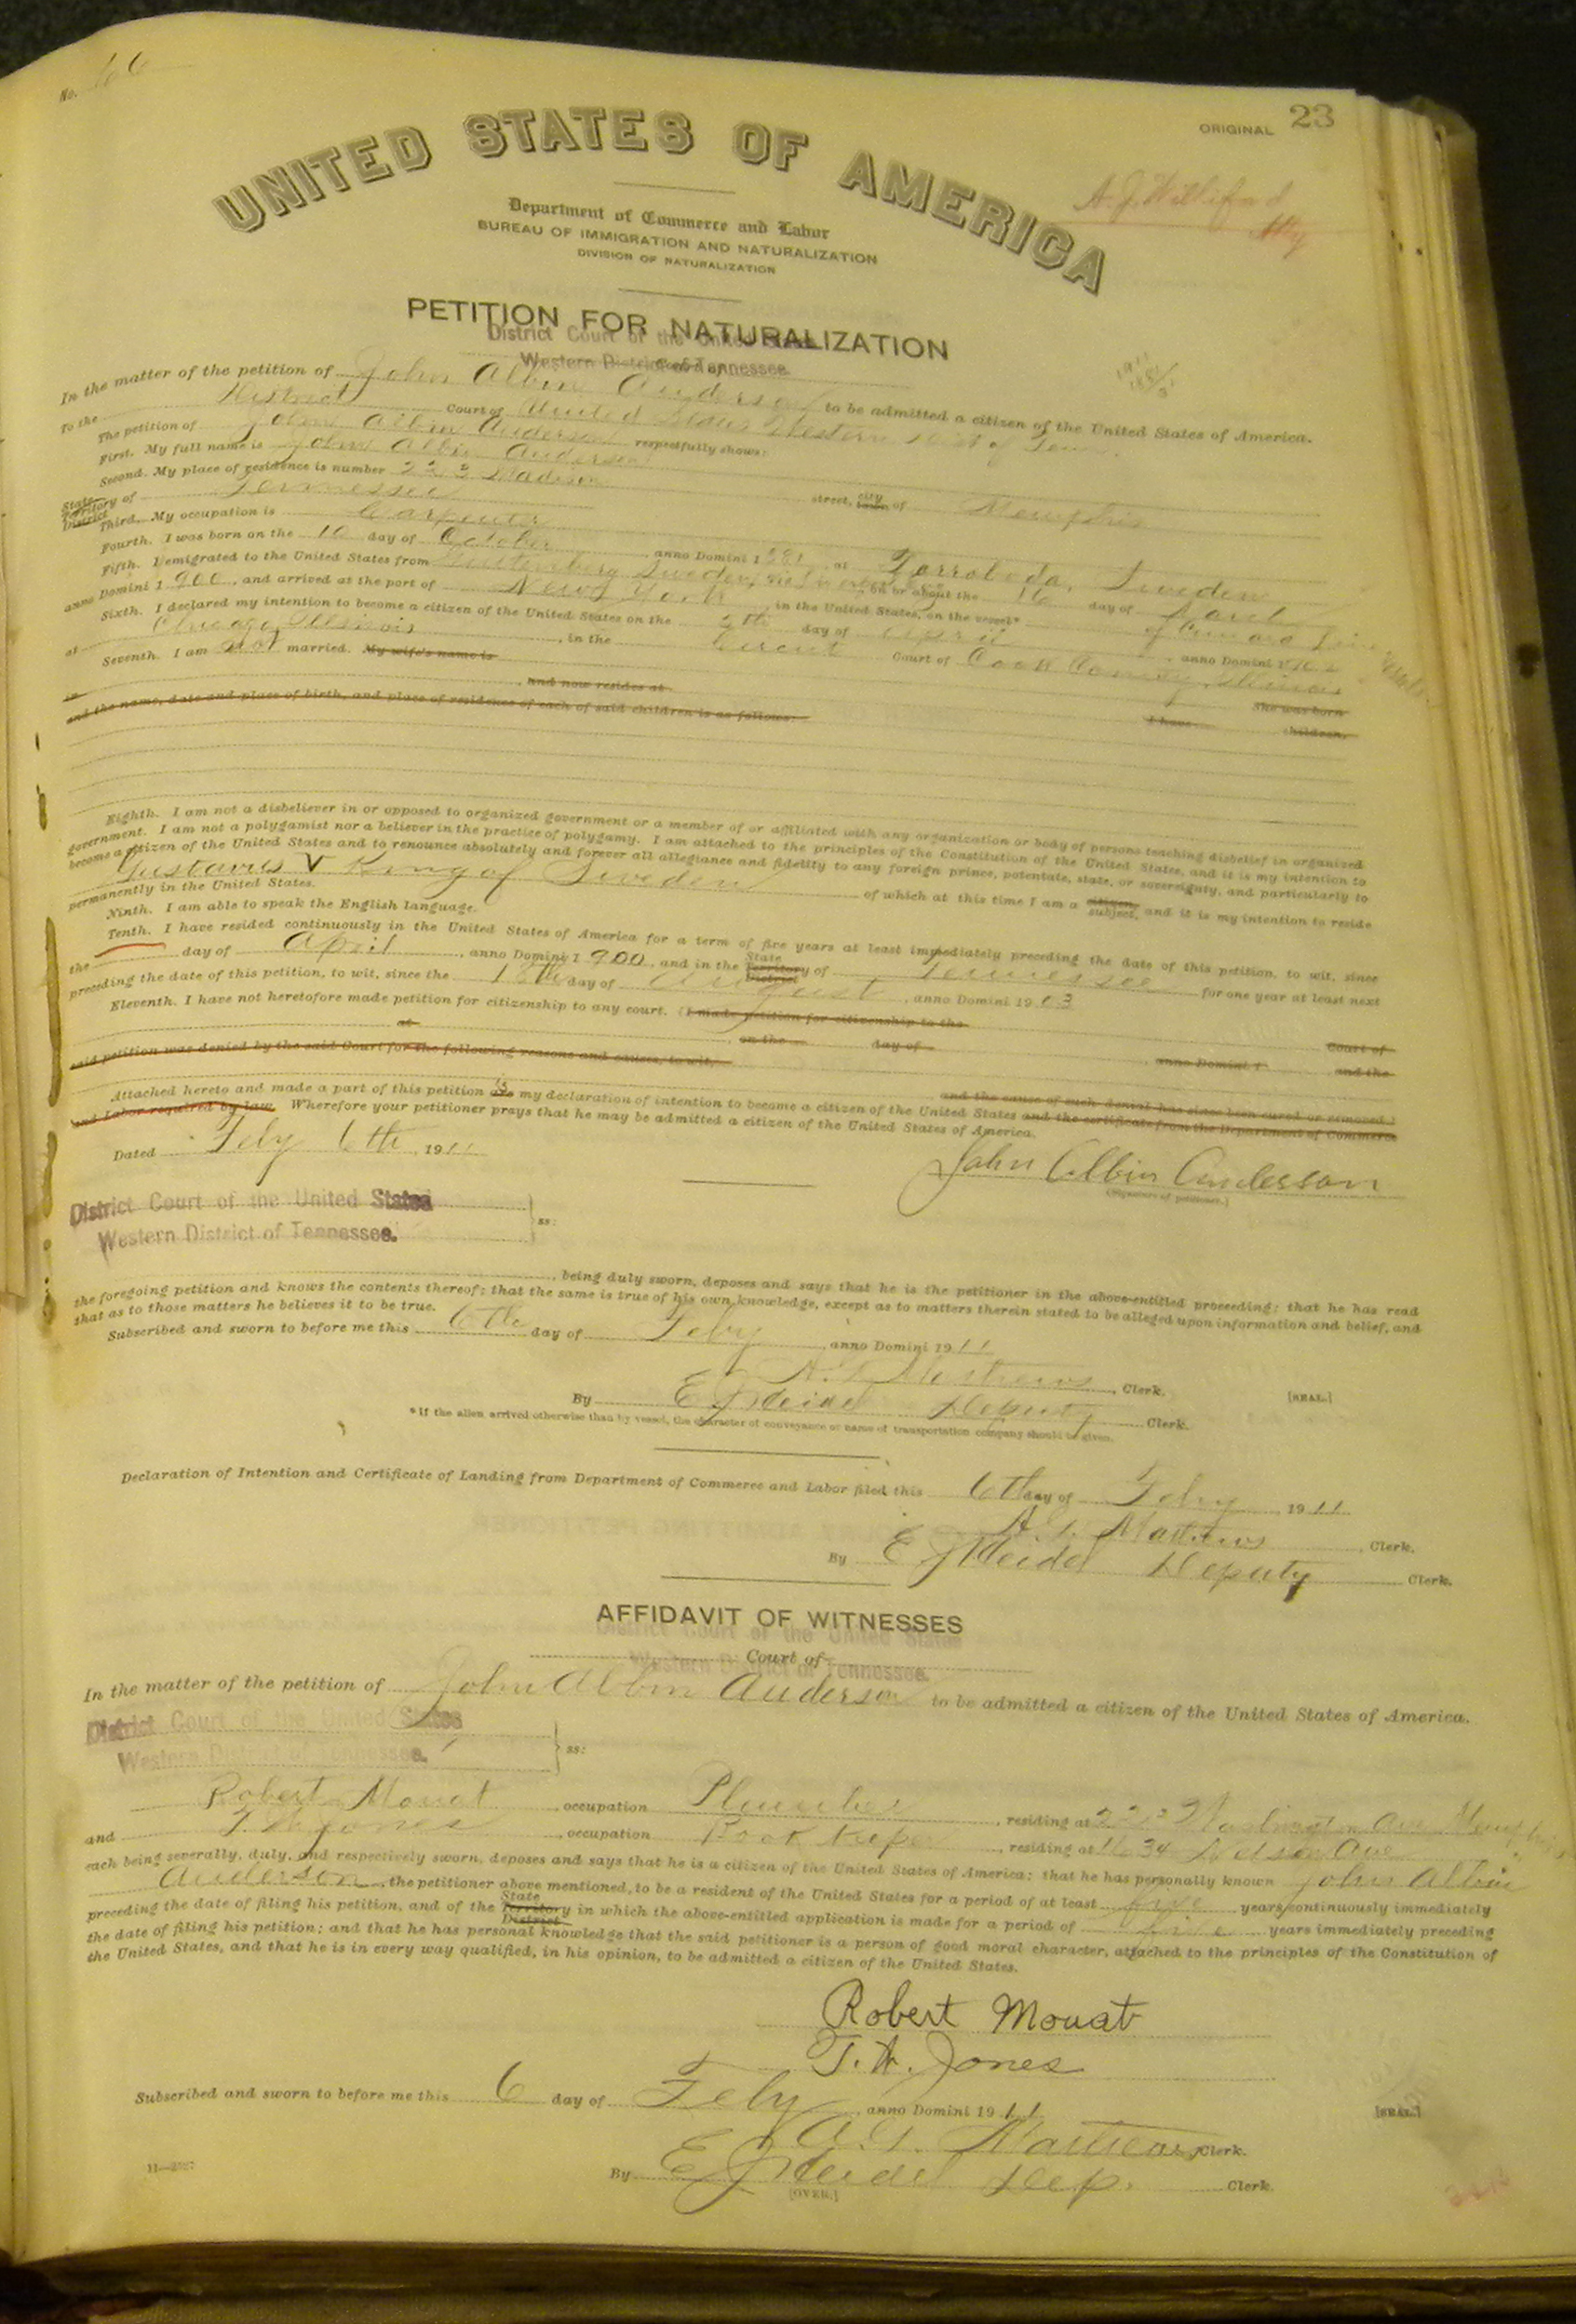 No. 66
ORIGINAL 23
UNITED STATES OF AMERICA
A. J. Williford
Atty
Department of Commerce and Labor
BUREAU OF IMMIGRATION AND NATURALIZATION
DIVISION OF NATURALIZATION
PETITION FOR NATURALIZATION
District Court of the United States
Western District of Tennessee.
In the matter of the petition of John Albin Anderson to be admitted a citizen of the United States of America.
To the District Court of United States Western Dist of Tenn.
The petition of John Albin Anderson respectfully shows:
First. My full name is John Albin Anderson
Second. My place of residence is number Madison street, city town of Memphis
State Territory District of Tennessee
Third. My occupation is Carpenter
Fourth. I was born on the 16 day of October anno Domini 1881, at Sweden
Fifth. I emigrated to the United States from Sweden, on or about the 16 day of
anno Domini 1900, and arrived at the port of New York in the United States, on the vessel*
Sixth. I declared my intention to become a citizen of the United States on the 5th day of April anno Domini
at Chicago, Illinois, in the Circuit Court of Cook County, Illinois
Seventh. I am not married. My wife's name is
She was born
in , and now resides at
I have children,
and the name, date and place of birth, and place of residence of each of said children is as follows:
Eighth. I am not a disbeliever in or opposed to organized government or a member of or affiliated with any organization or body of persons teaching disbelief in organized
government. I am not a polygamist nor a believer in the practice of polygamy. I am attached to the principles of the Constitution of the United States, and it is my intention to
become a citizen of the United States and to renounce absolutely and forever all allegiance and fidelity to any foreign prince, potentate, state, or sovereignty, and particularly to
Gustavus V King of Sweden of which at this time I am a citizen subject, and it is my intention to reside
permanently in the United States.
Ninth. I am able to speak the English language.
Tenth. I have resided continuously in the United States of America for a term of five years at least immediately preceding the date of this petition, to wit, since
the day of April, anno Domini 1900, and in the State Territory District of Tennessee for one year at least next
preceding the date of this petition, to wit, since the 15th day of August, anno Domini 1903
Eleventh. I have not heretofore made petition for citizenship to any court. (I made petition for citizenship to the
Court of
at , on the day of anno Domini 1 and the
said petition was denied by the said Court for the following reasons and causes, to wit,
and the cause of such denial has since been cured or removed.)
Attached hereto and made a part of this petition are is my declaration of intention to become a citizen of the United States and the certificate from the Department of Commerce
and Labor required by law. Wherefore your petitioner prays that he may be admitted a citizen of the United States of America.
Dated Feby 6th, 1911
John Albin Anderson
(Signature of petitioner.)
District Court of the United States
Western District of Tennessee. ss:
, being duly sworn, deposes and says that he is the petitioner in the above-entitled proceeding; that he has read
the foregoing petition and knows the contents thereof; that the same is true of his own knowledge, except as to matters therein stated to be alleged upon information and belief, and
that as to those matters he believes it to be true.
Subscribed and sworn to before me this 6th day of Feby, anno Domini 1911
A. G. Matthews, Clerk. [SEAL.]
By Deputy Clerk.
*If the alien arrived otherwise than by vessel, the character of conveyance or name of transportation company should be given.
Declaration of Intention and Certificate of Landing from Department of Commerce and Labor filed this 6th day of Feby, 1911
A. G. Matthews, Clerk.
By Deputy Clerk.
AFFIDAVIT OF WITNESSES
District Court of the United States
Court of
Western District of Tennessee.
In the matter of the petition of John Albin Anderson to be admitted a citizen of the United States of America.
District Court of the United States
Western District of Tennessee. ss:
Robert Mouat, occupation Plumber, residing at Washington Ave Memphis
and T. W. Jones, occupation Book Keeper, residing at 1634 Nelson Ave
each being severally, duly, and respectively sworn, deposes and says that he is a citizen of the United States of America; that he has personally known John Albin
Anderson, the petitioner above mentioned, to be a resident of the United States for a period of at least five years continuously immediately
preceding the date of filing his petition, and of the State Territory District in which the above-entitled application is made for a period of five years immediately preceding
the date of filing his petition; and that he has personal knowledge that the said petitioner is a person of good moral character, attached to the principles of the Constitution of
the United States, and that he is in every way qualified, in his opinion, to be admitted a citizen of the United States.
Robert Mouat
T. W. Jones
Subscribed and sworn to before me this 6 day of Feby, anno Domini 1911
[SEAL.]
A. G. Matthews, Clerk.
By Dep. Clerk.
[OVER.]